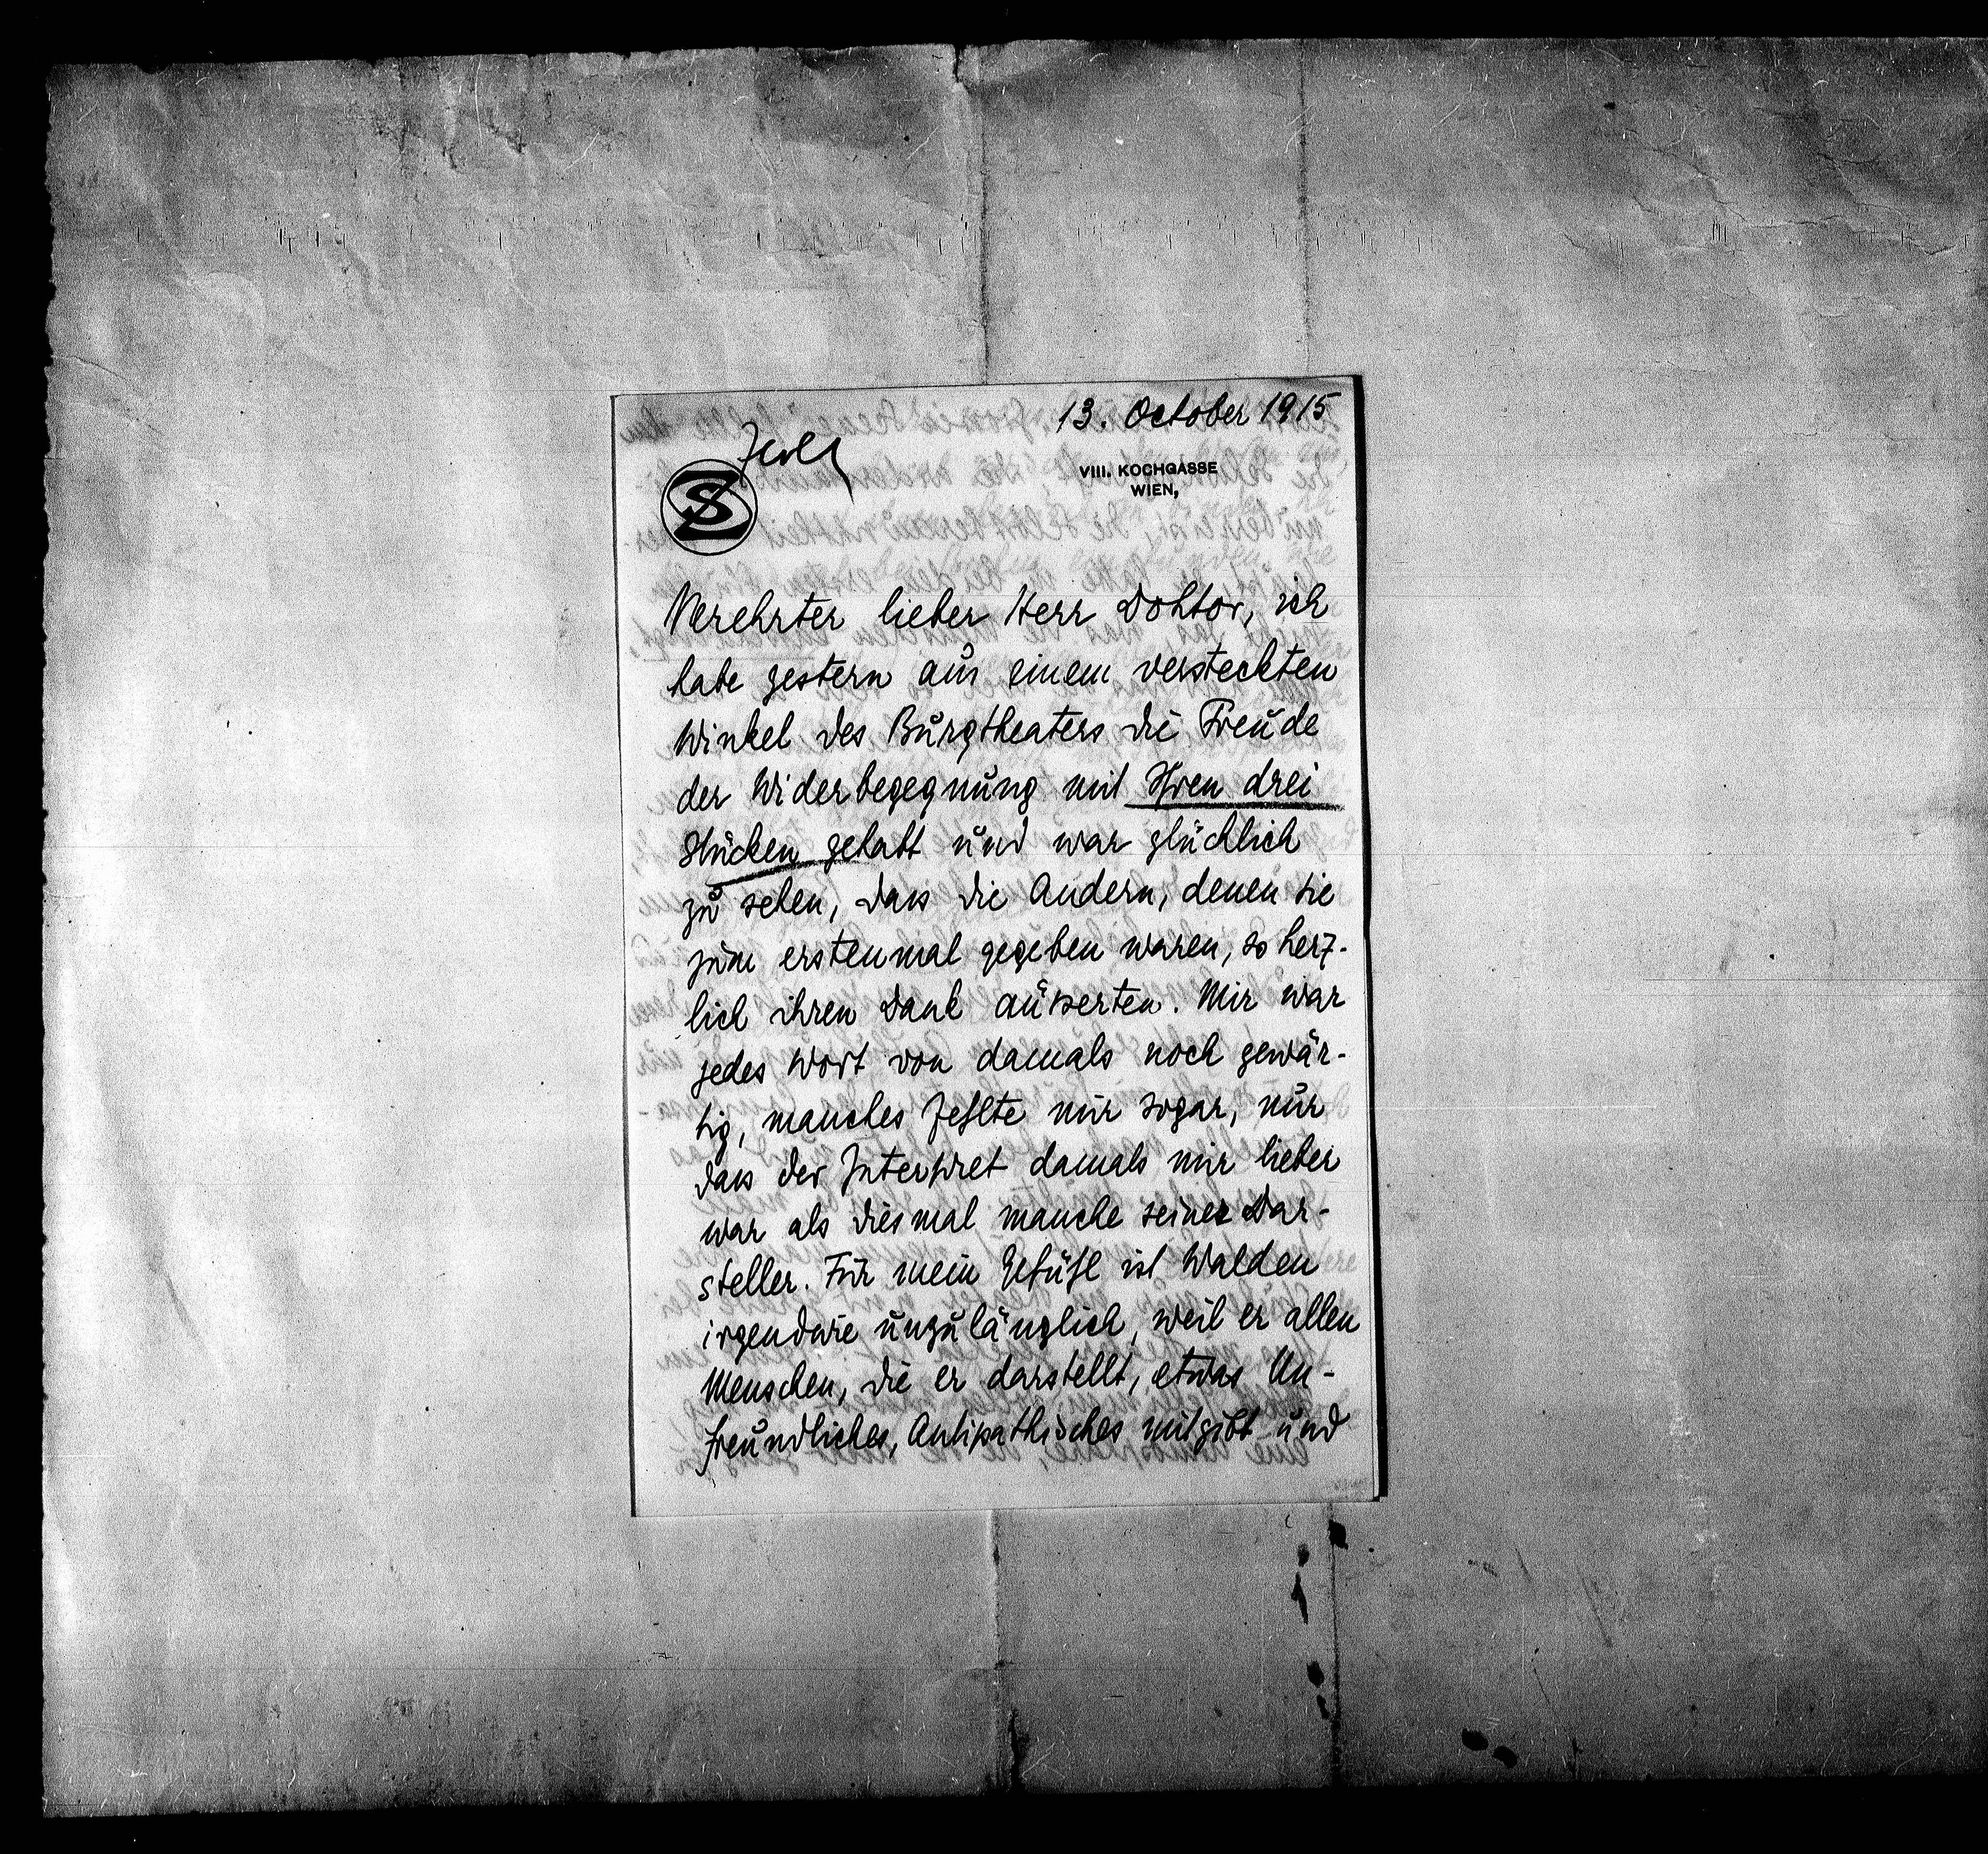 13. October 1915
SZ
VIII. KOCHGASSE
WIEN,
Verehrter lieber Herr Doktor, ich
habe gestern aus einem versteckten
Winkel des Burgtheaters die Freude
der Widerbegegnung mit Ihren drei
Stücken gehabt und war glücklich
zu sehen, dass die Andern, denen sie
zum erstenmal gegeben waren, so herz-
lich ihren Dank äusserten. Mir war
jedes Wort von damals noch gewär-
tig, manches fehlte mir sogar, nur
dass der Interpret damals mir lieber
war als diesmal manche seiner Dar-
steller. Für mein Gefühl ist Walden
irgendwie unzulänglich, weil er allen
Menschen, die er darstellt, etwas Un-
freundliches, Antipathisches mitgibt und